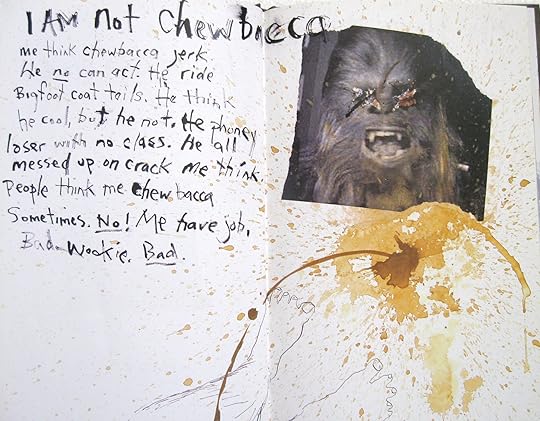 I AM not Chewbacca
me think chewbacca jerk.
He no can act. He ride
Bigfoot coat tails. He think
he cool, but he not. He phoney
loser with no class. He all
messed up on crack me think.
People think me chewbacca
Sometimes. No! Me have job,
Bad Wookie. Bad.